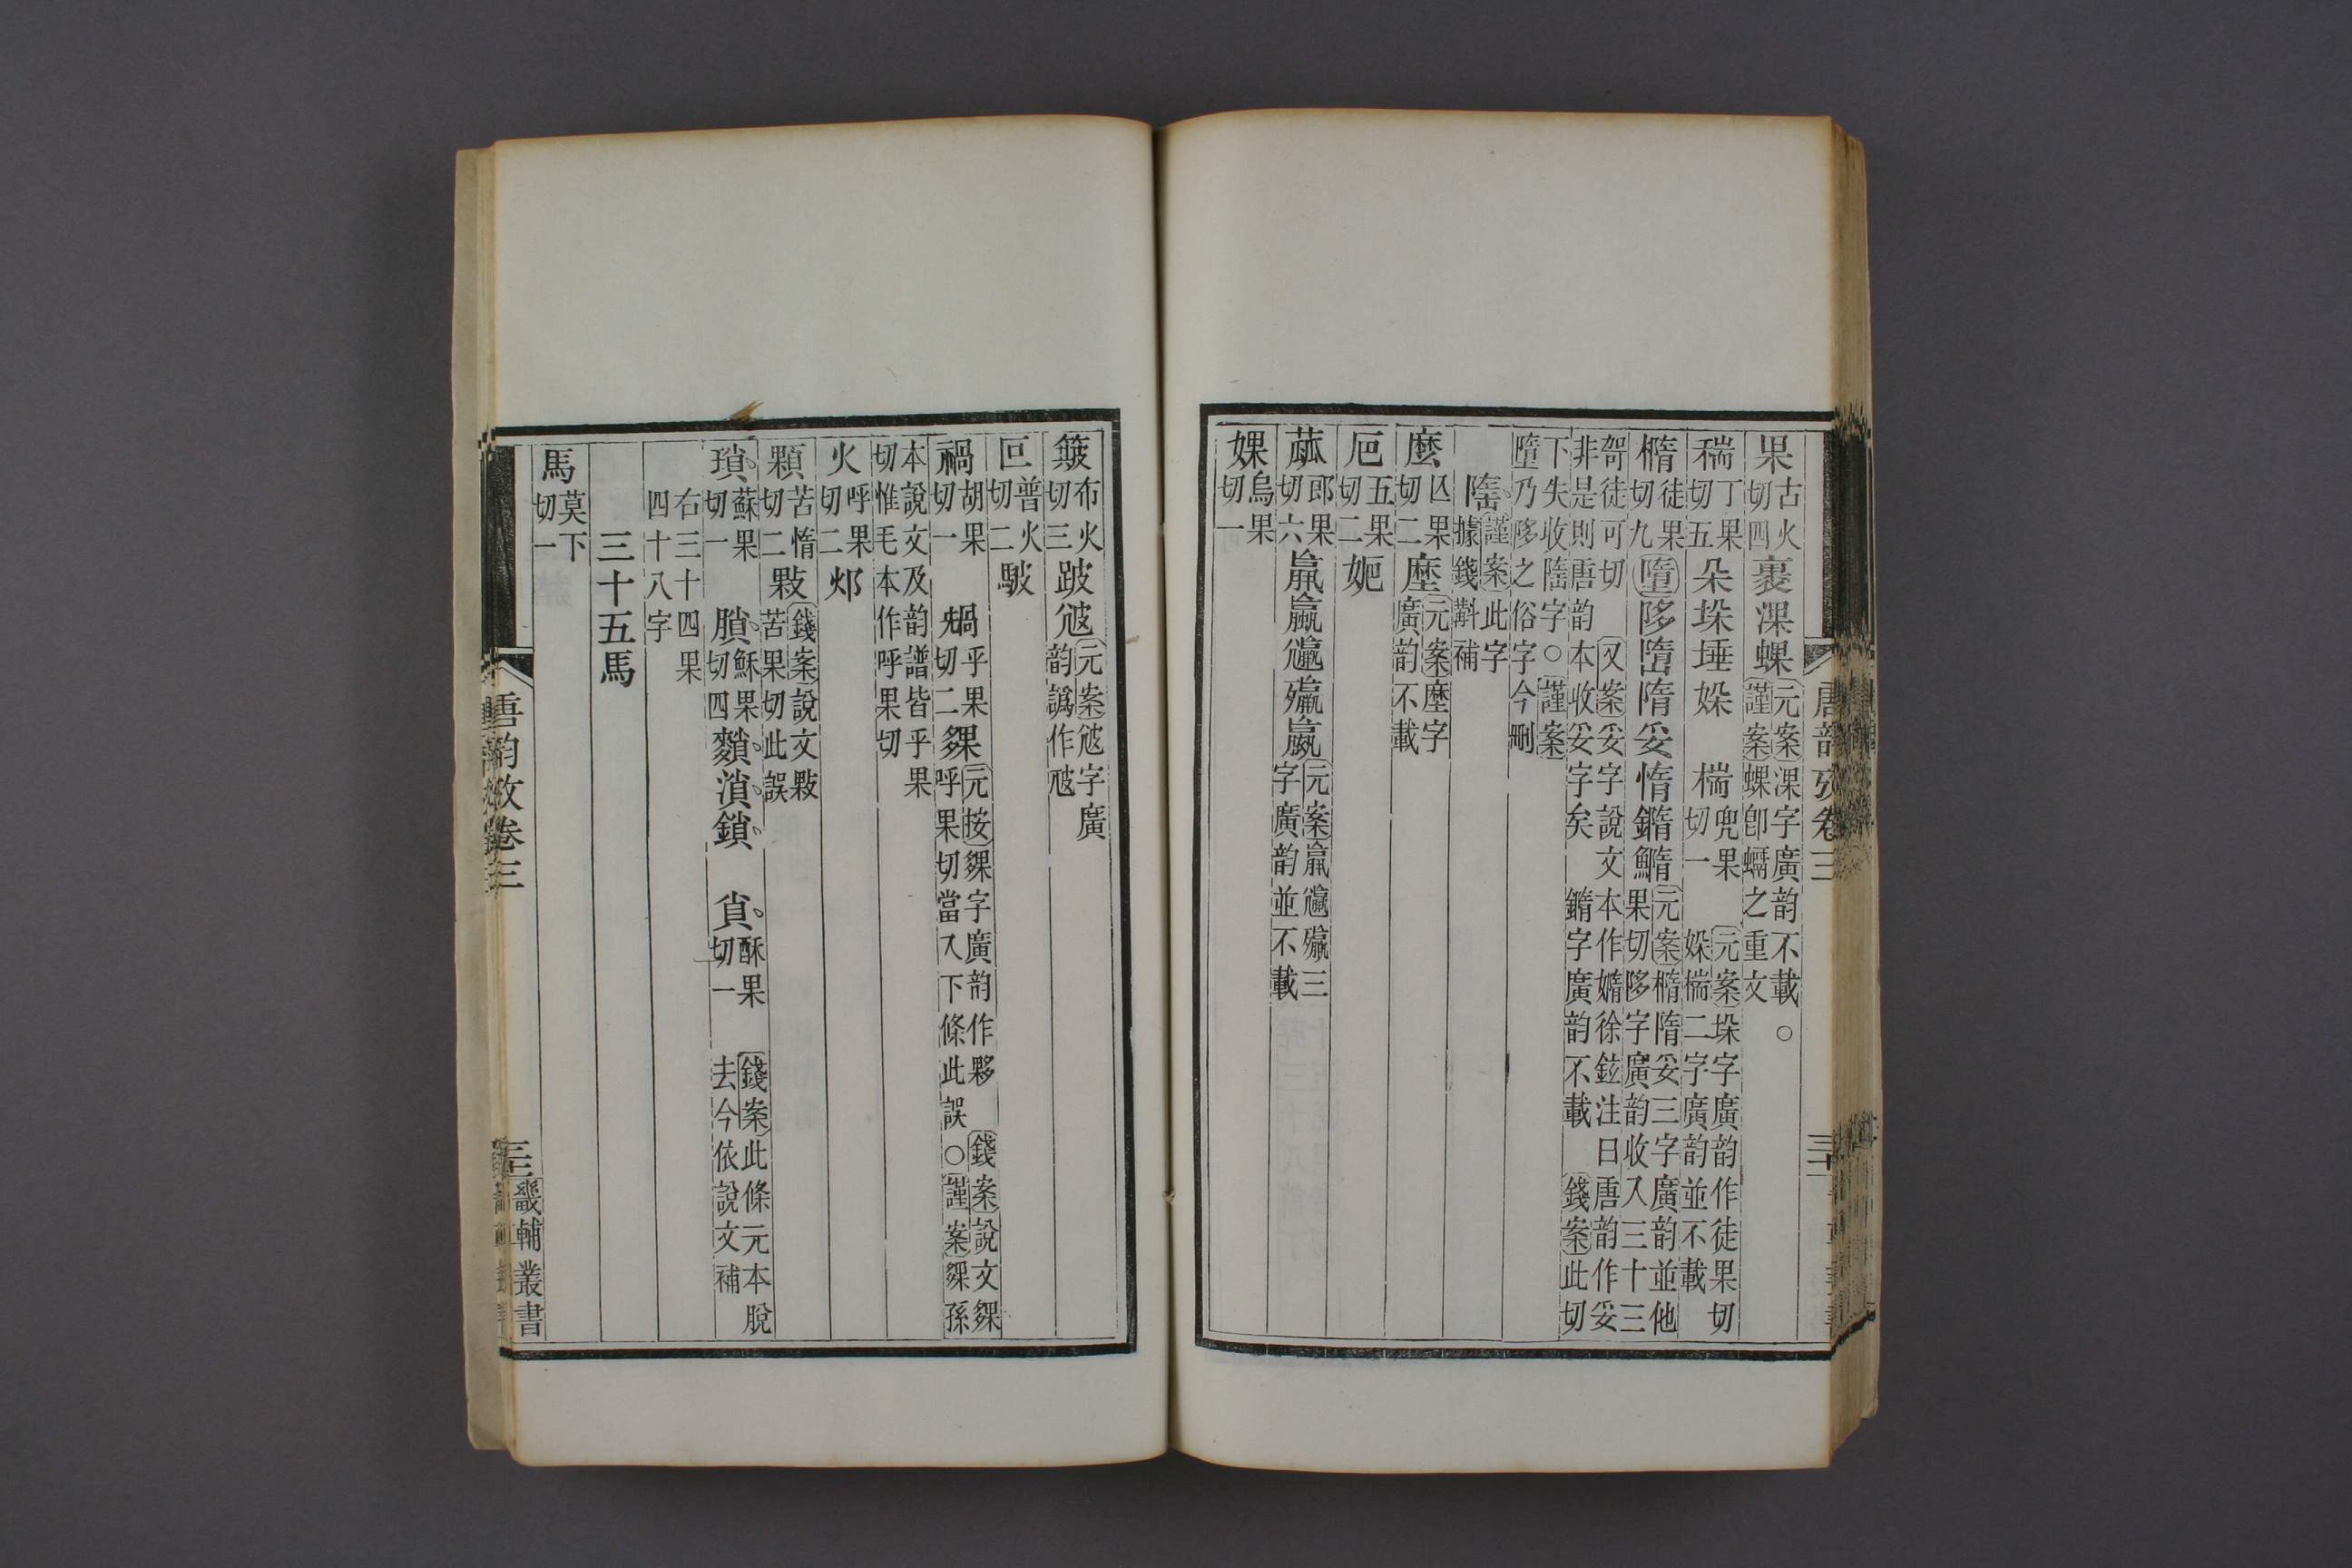 果古火切四裹淉蜾元案淉字廣韵不載○謹案蜾卽蠣之重文
稬丁果切五朵垛埵媣 椯兜果切一 元案垛字廣韵作徒果切媣椯二字廣韵並不載
橢徒果切九墮陊嶞隋妥惰鐊鰖元案橢隋妥三字廣韵並他果切陊字廣韵收入三十三
哿徒可切 又案妥字說文本作嫷徐鉉注曰唐韵作妥非是則唐韵本收妥字矣 鐊字廣韵不載 錢案此切
下失收隓字○謹案墮乃陊之俗字今刪
隓謹案此字據錢斠補
麼亾果切二㢳元案㢳字廣韵不載
蓏郎果切六蠃臝𡰠㱻嬴元案蠃𡰠㱻三字廣韵並不載
婐烏果切一
簸布火切三跛𡯄元案𡯄字廣韵譌作𡯄
叵普火切二駊
禍胡果切一 䄀乎果切二夥元按夥字廣韵作夥 呼果切當入下條此誤○錢案說文夥 謹案夥孫
本說文及韵譜皆乎果切惟毛本作呼果切
火呼果切二邩
顆苦惰切二敤錢案說文敤苦果切此誤
瑣蘇果切一 䐝穌果切四𪍽溑鎖 𧴪酥果切一 錢案此條元本脫去今依說文補
右三十四果四十八字
三十五馬
馬莫下切一
唐韵攷卷三
三十二
畿輔叢書